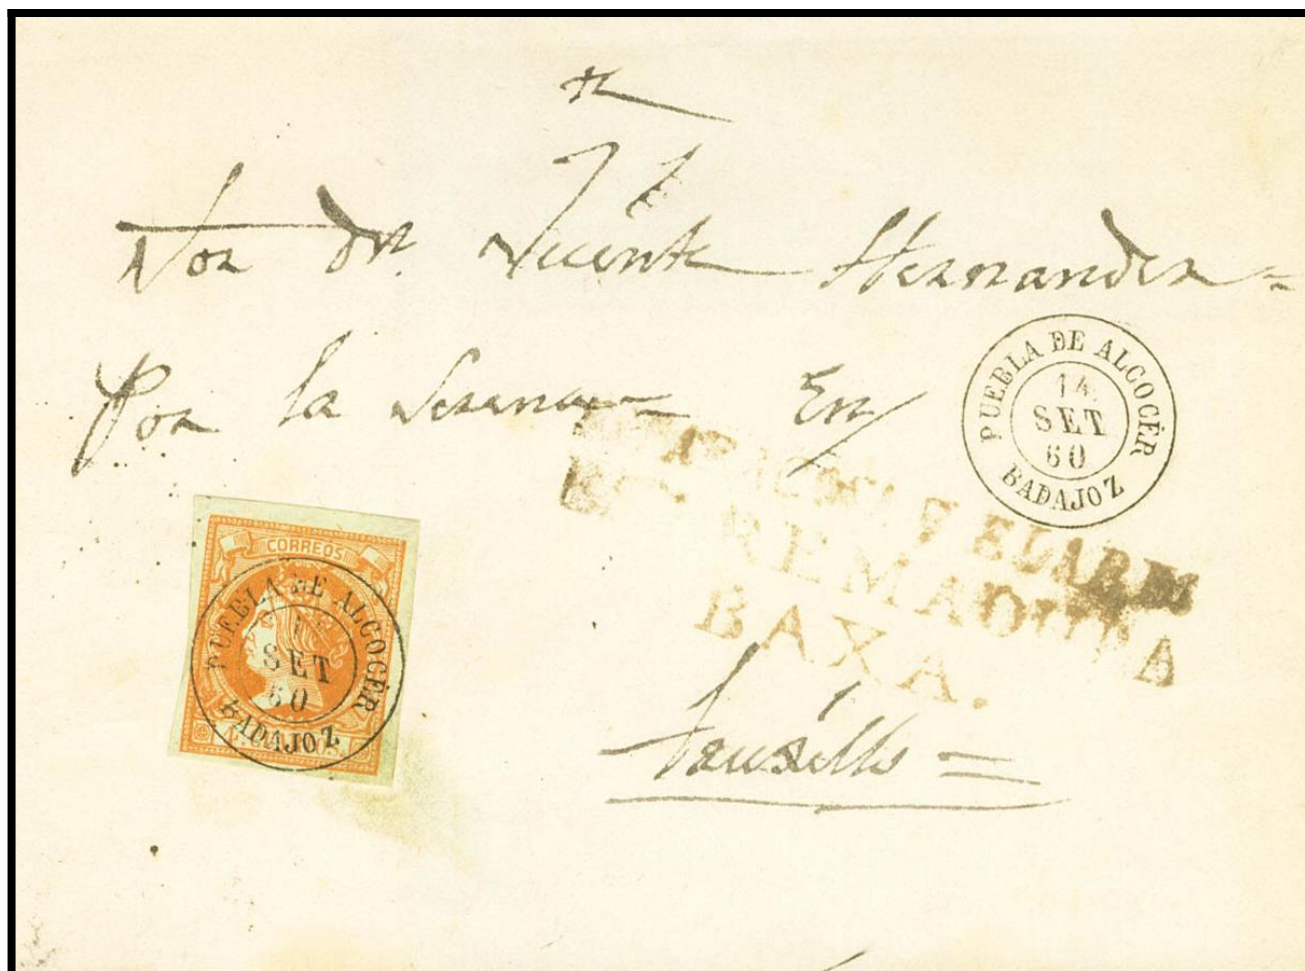 Sor dn. Vicente Hernandez=
Por la Serena En
PUEBLA DE ALCOCÉR
14
SET
60
BADAJOZ
EXTREMADURA
BAXA.
CORREOS
PUEBLA DE ALCOCÉR
SET
60
BADAJOZ
Truxillo =